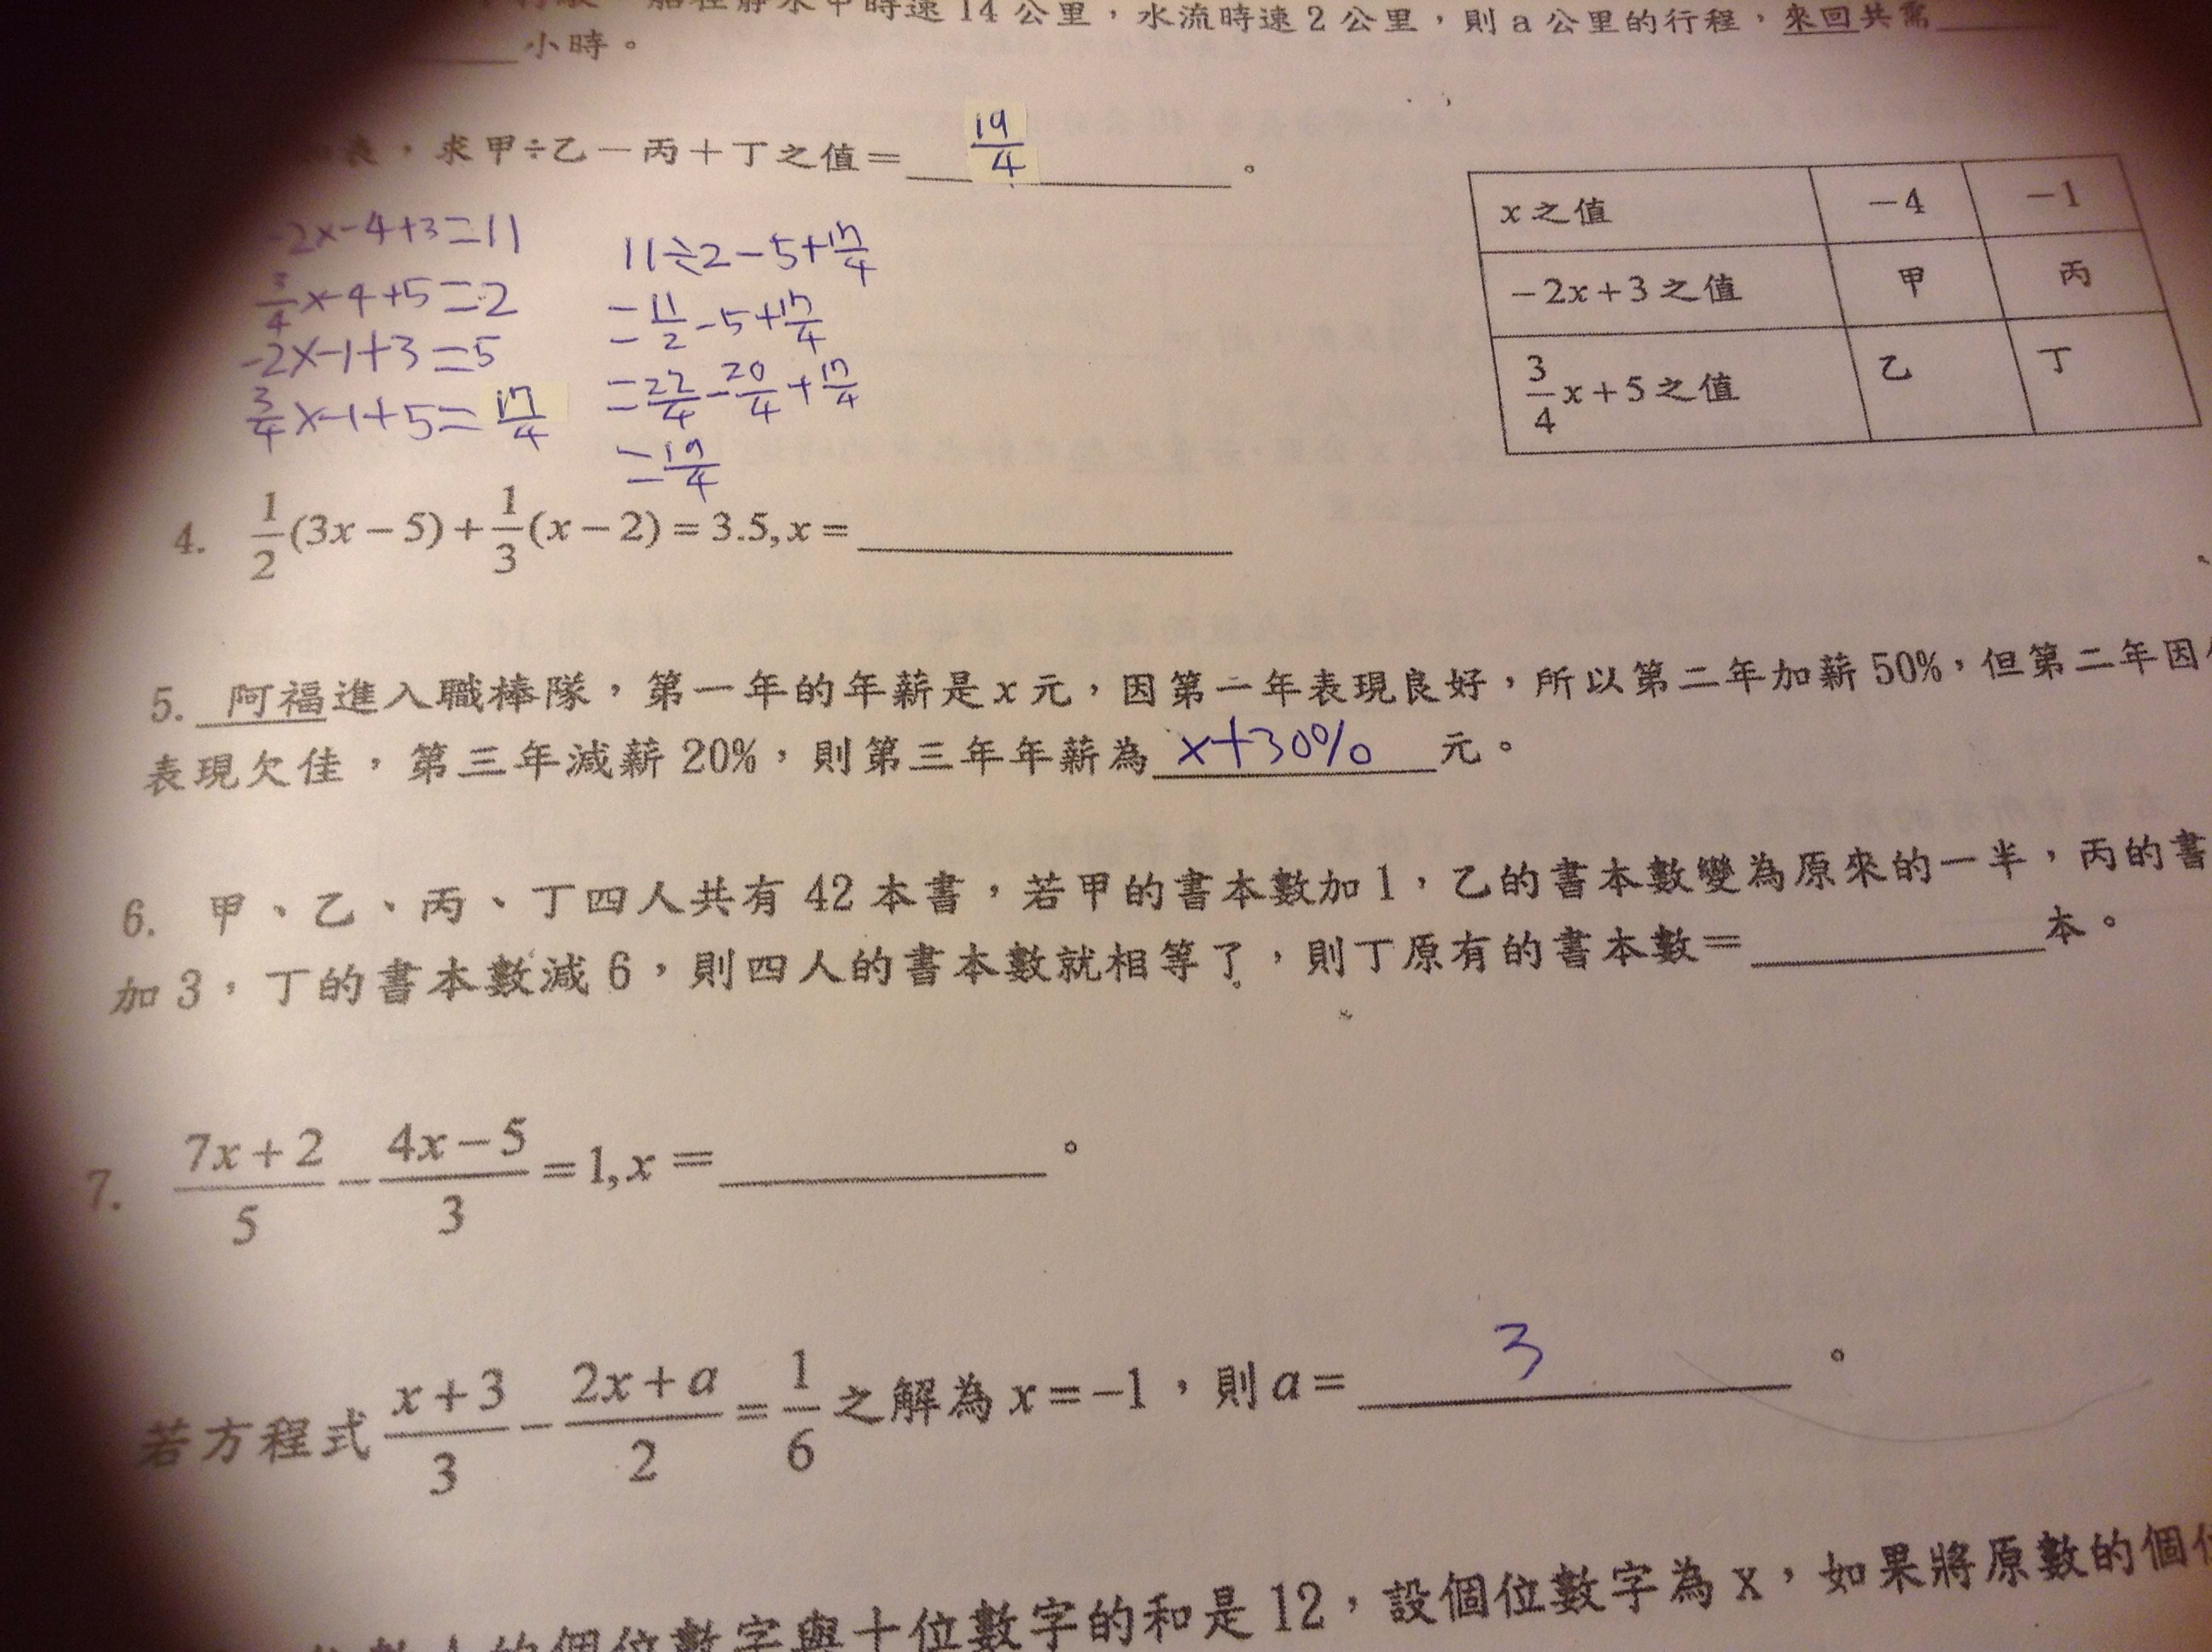 船在靜水中時速14公里，水流時速2公里，則a公里的行程，來回共需
小時。
表，求甲÷乙－丙＋丁之值＝ 19/4 。
x之值 －4 －1
－2x＋3之值 甲 丙
3/4 x＋5之值 乙 丁
-2×-4+3=11
3/4×-4+5=2
-2×-1+3=5
3/4×-1+5=17/4
11÷2-5+17/4
=11/2-5+17/4
=22/4-20/4+17/4
=19/4
4. 1/2(3x－5)＋1/3(x－2)＝3.5,x＝
5. 阿福進入職棒隊，第一年的年薪是x元，因第一年表現良好，所以第二年加薪50%，但第二年因
表現欠佳，第三年減薪20%，則第三年年薪為 x+30% 元。
6. 甲、乙、丙、丁四人共有42本書，若甲的書本數加1，乙的書本數變為原來的一半，丙的書
加3，丁的書本數減6，則四人的書本數就相等了，則丁原有的書本數＝ 本。
7. (7x＋2)/5－(4x－5)/3＝1,x＝ 。
若方程式(x＋3)/3－(2x＋a)/2＝1/6之解為x＝－1，則a＝ 3 。
的個位數字與十位數字的和是12，設個位數字為x，如果將原數的個